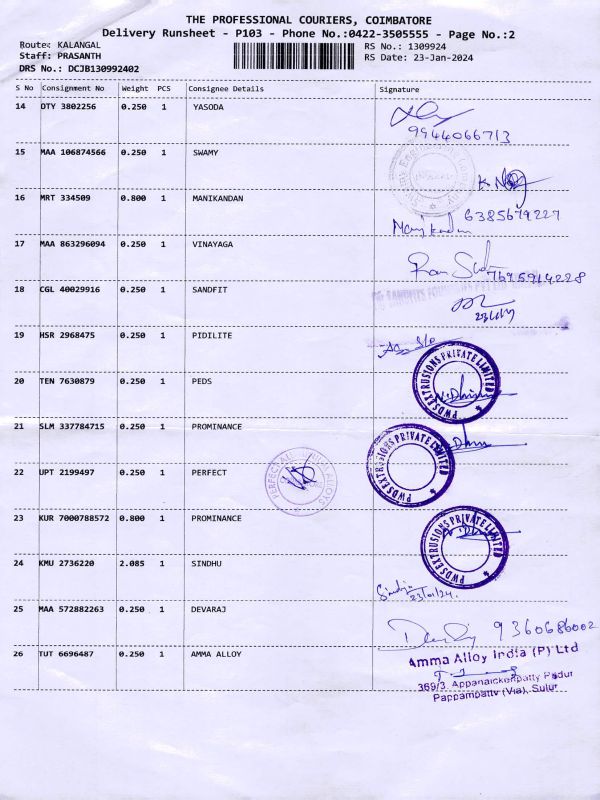 THE PROFESSIONAL COURIERS, COIMBATORE
Delivery Runsheet - P103 - Phone No.:0422-3505555 - Page No.:2
Route: KALANGAL
RS No.: 1309924
Staff: PRASANTH
RS Date: 23-Jan-2024
DRS No.: DCJB130992402
S No Consignment No Weight PCS Consignee Details Signature
14 DTY 3802256 0.250 1 YASODA
9944066713
15 MAA 106874566 0.250 1 SWAMY
16 MRT 334509 0.800 1 MANIKANDAN
6385679227
Manikandan
17 MAA 863296094 0.250 1 VINAYAGA
7695914228
18 CGL 40029916 0.250 1 SANDFIT
19 HSR 2968475 0.250 1 PIDILITE
20 TEN 7630879 0.250 1 PEDS
PWDS EXTRUSIONS PRIVATE LIMITED
21 SLM 337784715 0.250 1 PROMINANCE
PWDS EXTRUSIONS PRIVATE LIMITED
22 UPT 2199497 0.250 1 PERFECT
23 KUR 7000788572 0.800 1 PROMINANCE
PWDS EXTRUSIONS PRIVATE LIMITED
24 KMU 2736220 2.085 1 SINDHU
23/01/24.
25 MAA 572882263 0.250 1 DEVARAJ
9360686002
26 TUT 6696487 0.250 1 AMMA ALLOY
Amma Alloy India (P) Ltd
369/3, Appanaickenpatty Pudur
Pappampatty (Via), Sulur